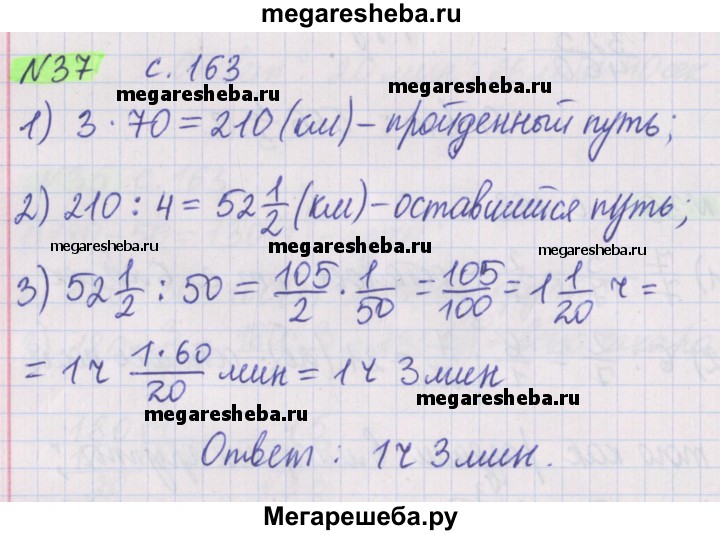 megaresheba.ru
№37 с. 163
megaresheba.ru megaresheba.ru
1) 3 · 70 = 210 (км) – пройденный путь;
megaresheba.ru megaresheba.ru
2) 210 : 4 = 52 1/2 (км) – оставшийся путь;
megaresheba.ru megaresheba.ru megaresheba.ru
3) 52 1/2 : 50 = 105/2 · 1/50 = 105/100 = 1 1/20 ч =
= 1ч 1·60/20 мин = 1ч 3мин
megaresheba.ru megaresheba.ru
Ответ : 1ч 3мин.
Мегарешеба.ру